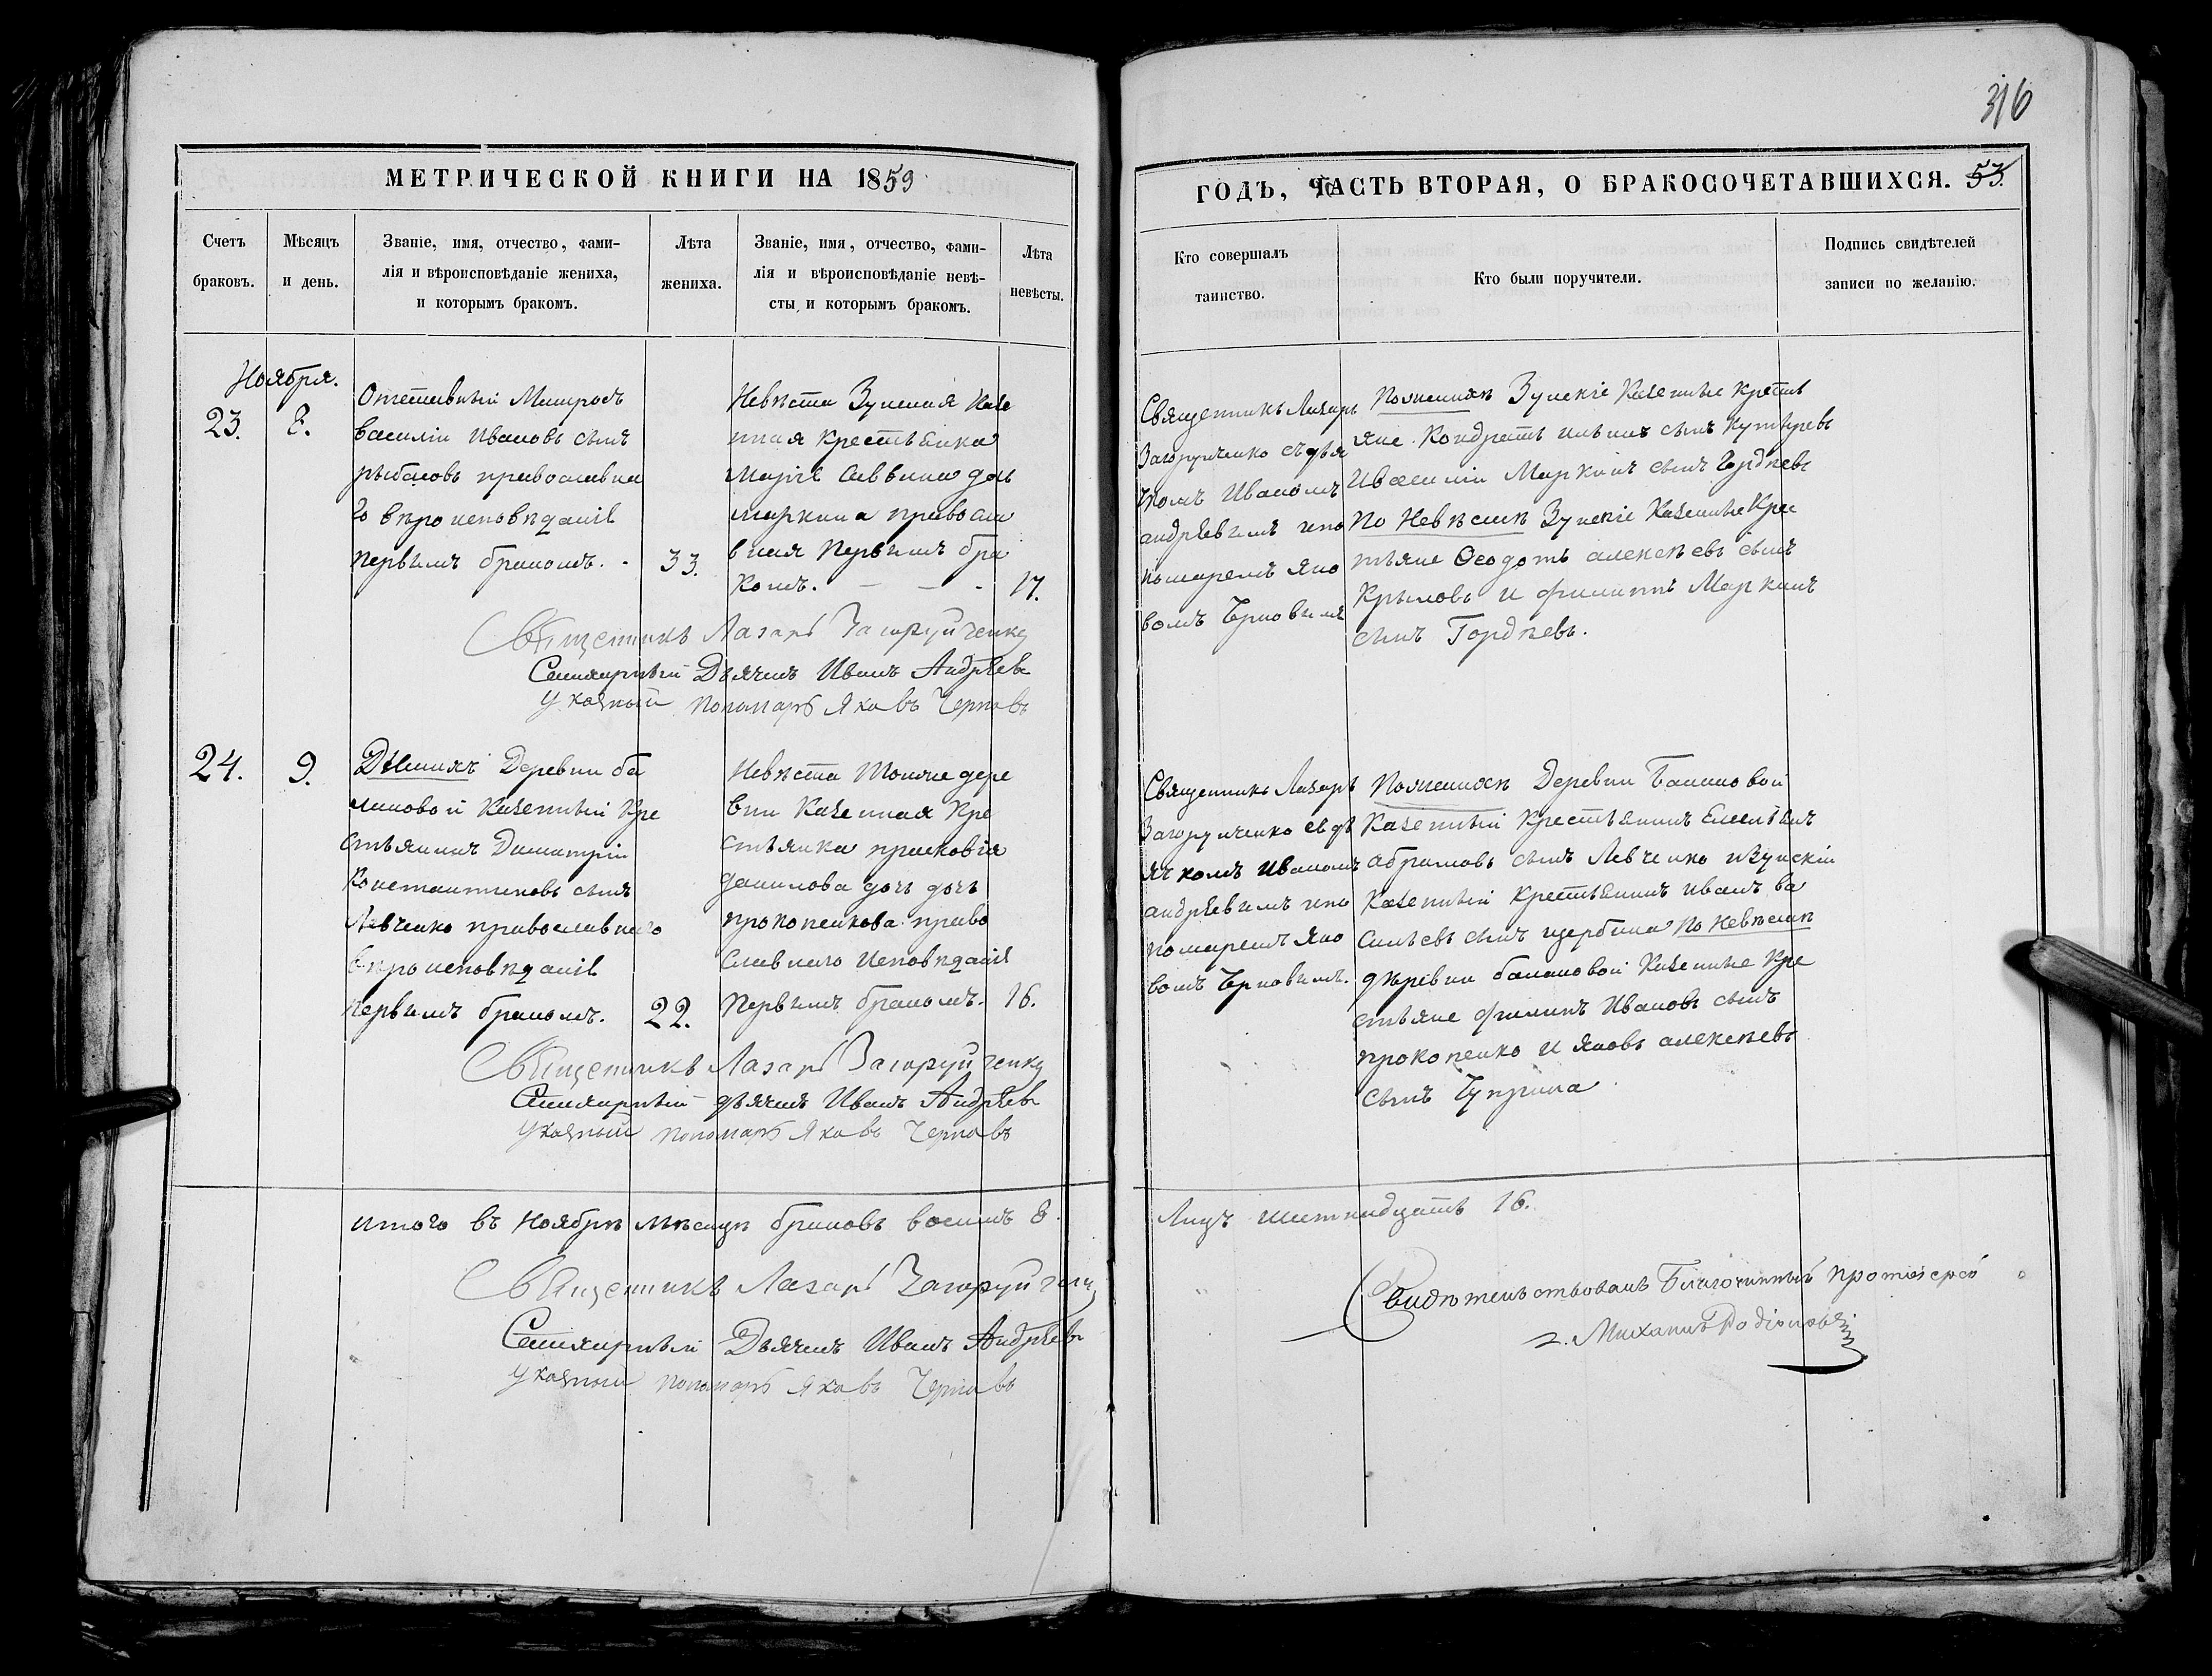 316
МЕТРИЧЕСКОЙ КНИГИ НА 1859
ГОДЪ, ЧАСТЬ ВТОРАЯ, О БРАКОСОЧЕТАВШИХСЯ. 53.
Счетъ
браковъ.
Мѣсяцъ
и день.
Званіе, имя, отчество, фами-
лія и вѣроисповѣданіе жениха,
и которымъ бракомъ.
Лѣта
жениха.
Званіе, имя, отчество, фами-
лія и вѣроисповѣданіе невѣ-
сты, и которымъ бракомъ.
Лѣта
невѣсты.
Кто совершалъ
таинство.
Кто были поручители.
Подпись свидѣтелей
записи по желанію.
Ноября.
23.
8.
Отставный Матросъ
василій Ивановъ сынъ
рыбаковъ православна
го вѣроисповѣданіе
первымъ бракомъ.
33.
Невѣста Зуцкая Казе
нная крестьянка
Марія Саввина дочь
маркина правосла
вная Первымъ бра
комъ.
17.
Священникъ Лазарь
Загоруйченко съ дья
чкомъ Иваномъ
андрѣевымъ и по
номаремъ Яко
вомъ Черновымъ
По женихѣ Казенные крестья
яне Кондратъ сынъ
И василій Маркинъ сынъ Гордѣевъ
По Невѣстѣ Казенные Крес
тьяне Ѳеодотъ алексѣевъ сынъ
Крыловъ и филиппъ Маркинъ
сынъ Гордѣевъ.
Священникъ Лазарь Загоруйченко
Дьячекъ Иванъ Андрѣевъ
Указный пономарь Яковъ Черновъ
24.
9.
Деревни ба
лановой Казенный Кре
стьянинъ Димитрій
Константиновъ сынъ
Левченко православнаго
вѣроисповѣданіе
первымъ бракомъ.
22.
Невѣста тояже дере
вни Казенная Кре
стьянка прасковія
данилова дочь дочь
прокопенкова право
славнаго исповѣданіе
Первымъ бракомъ.
16.
Священникъ Лазарь
Загоруйченко съ дь
ячкомъ Иваномъ
андрѣевымъ и по
номаремъ Яко
вомъ Черновымъ.
По женихѣ Деревни Балановой
Казенный Крестьянинъ
абрамовъ сынъ Левченко
Казенный Крестьянинъ иванъ ва
сильевъ сынъ щербина По Невѣстѣ
деревни балановой Казенные Кре
стьяне филипъ Ивановъ сынъ
прокопенко и Яковъ алексѣевъ
сынъ Чуприна
Священникъ Лазарь Загоруйченко
дьячекъ Иванъ Андрѣевъ
Указный пономарь Яковъ Черновъ
итого въ Ноябрѣ мѣсяцѣ браковъ восимъ 8.
Лицъ шестнадцать 16.
Священникъ Лазарь Загоруйченко
Дьячекъ Иванъ Андрѣевъ
Указный пономарь Яковъ Черновъ
Свидѣтельствовалъ Благочинный протоіерей
Михаилъ